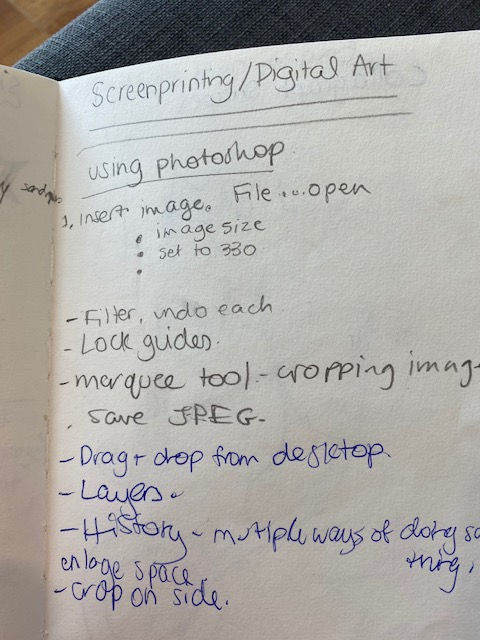 Screenprinting/Digital Art
using photoshop
1. Insert image. File...open
• image size
• set to 330
•
- Filter, undo each
- Lock guides.
- marquee tool - cropping imag
. save JPEG.
- Drag + drop from desktop.
- Layers.
- History - mutiple ways of doing sa
thing,
enlage space,
- crop on side.